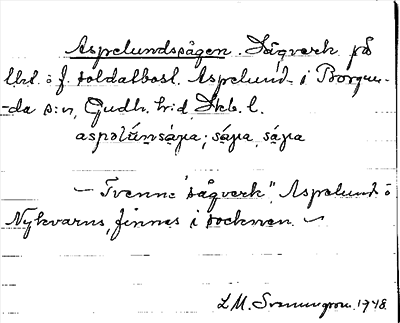 Aspelundssågen. Sågverk på
f. soldatbost. Aspelund i Borgun-
-da s:n, Gudh. h:d, Skb. l.
aspəlúnsåga; såga, såga
— Tvenne "sågverk", Aspelund o
Nykvarns, finnes i socknen. –
L.M. 1948.